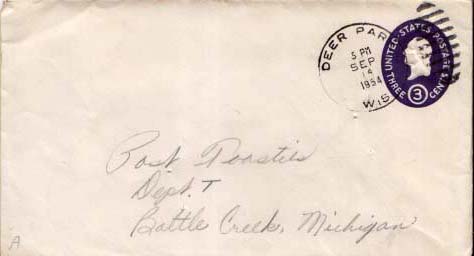 DEER PAR
5 PM
SEP
14
1954
WIS
UNITED STATES POSTAGE
THREE 3 CENTS
Post Toasties
Dept. T
Battle Creek, Michigan
A